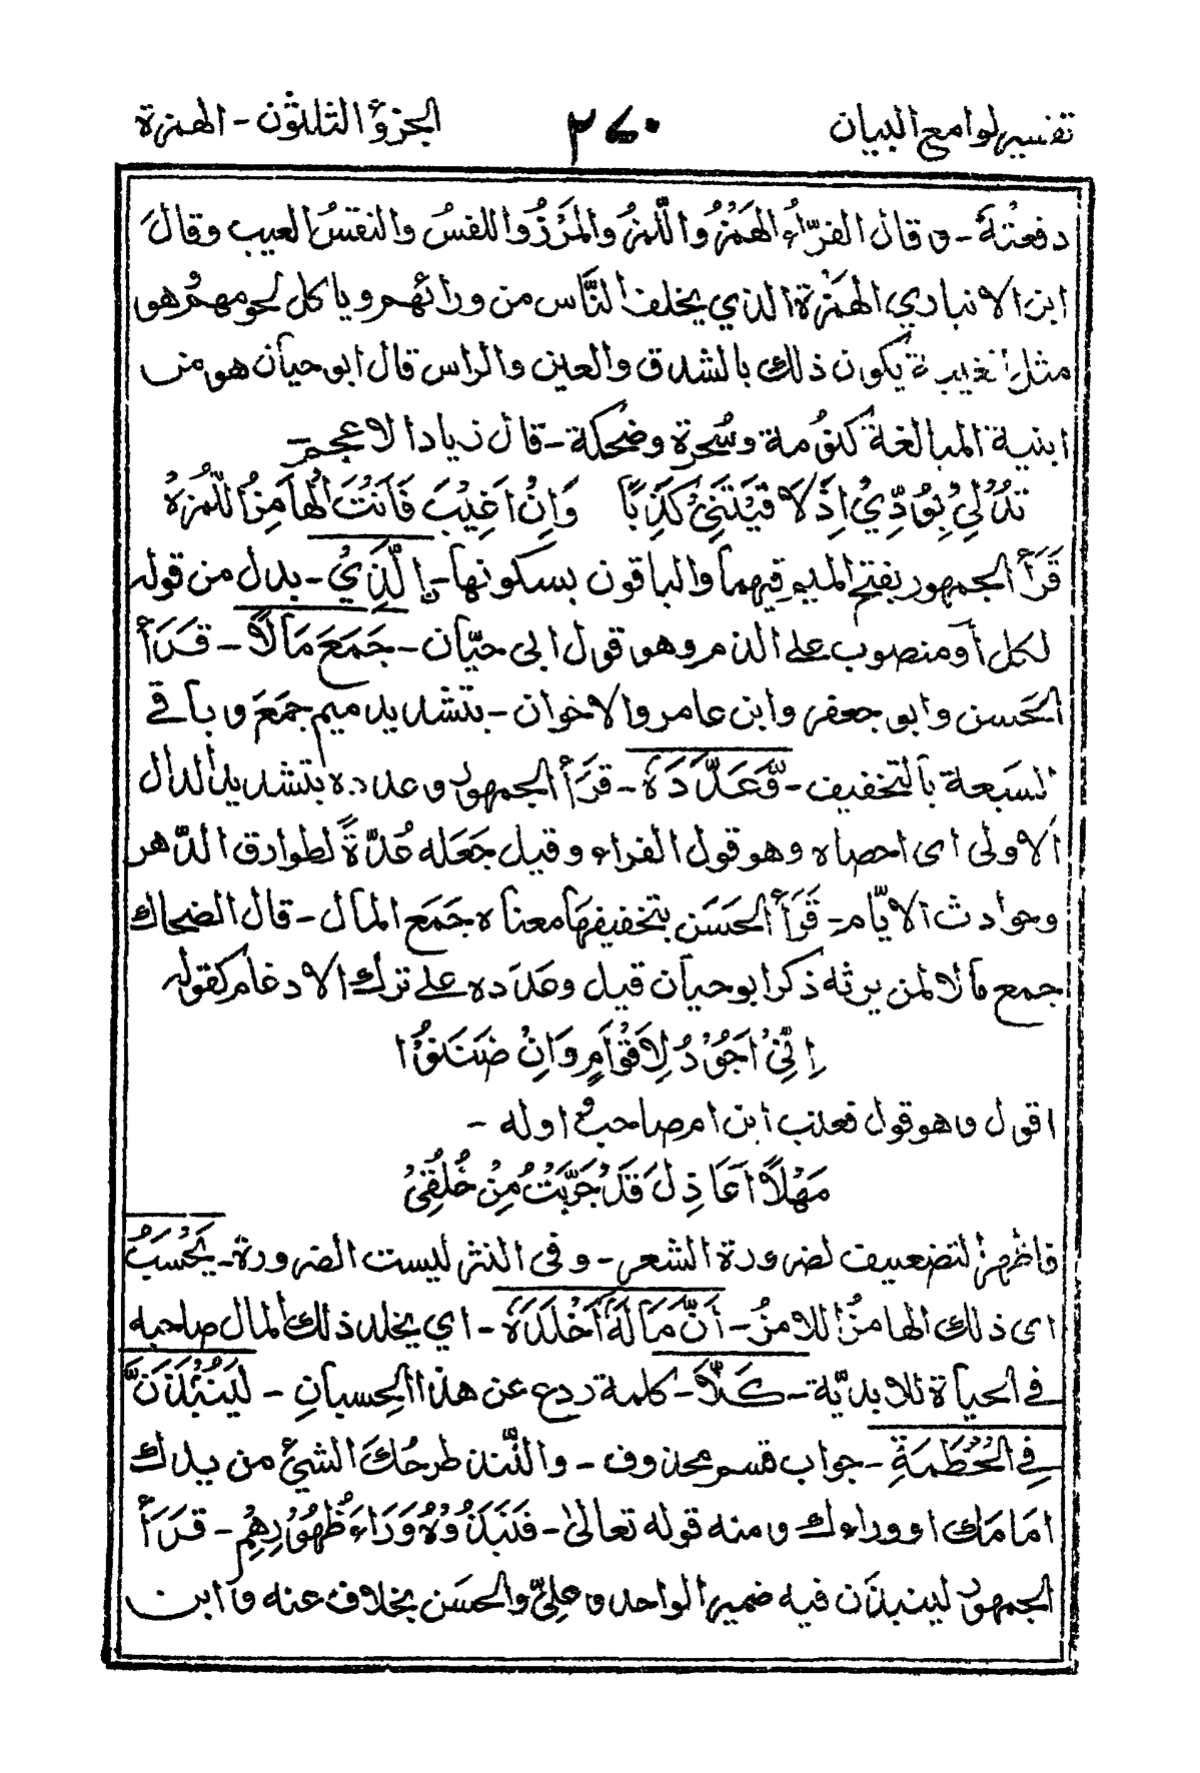 تفسير لوامع البيان ٢٤٠ الجزؤ الثلثون - الهمزة
دفعتهٗ - و قال الفرّاءُ الهَمْزُ وَاللّمزُ والمَرْزُ واللقسُ والنقسُ العيب وقالَ
ابن الانباري الهَمْزة الذي يخلف النَّاس من ورائهم و ياكل لحومهمْ هو
مثل الغيبة يكون ذلك بالشدق والعين والراس قال ابو حيان هو من
ابنية المبالغة كنوُمة وسُحرة وضحكة - قال زياد الاعجم -
تَدُلِيْ بِوُدِّيْ اِذَا لَاقَيْتَنِيْ كَذِبًا وَاِنْ اَغِيْبَ فَاَنْتَ الْهَامِزُ اللُّمَزَهْ
قَرَأَ الجمهور بفتح الميم فيهما والباقون بسكونها - اِلَّذِيْ - بدل من قوله
لكل أو منصوب على الذم وهو قول ابى حيّان - جَمَعَ مَالًا - قَرَأَ
الحَسن وابو جعفر وابن عامر والاخوان - بتشديد ميم جمَعَ و باقے
السَبعة بالتخفيف - وَّعَدَّدَهٗ - قَرَأَ الجمهور وعدده بتشديد الدال
الاولى اى احصاه وهو قول الفراء و قيل جَعَله عُدّةً لطوارق الدّهر
وحوادث الايّام - قَرَأَ الحَسَن بتخفيفها معناه جَمَع المال - قال الضحاك
جمع مالا لمن يرثه ذكر ابو حيان قيل وعَدَده على ترك الادغام كقوله
اِنِّيْ اَجُوْدُ لِاَقْوَامٍ وَاِنْ ضَنَنُوْا
اقول وهو قول قعنب ابن ام صاحب و اوله -
مَهْلًا اَعَاذِلَ قَدْ جَرَّبْتُ مِنْ خُلُقِيْ
فاظهر التضعيف لضرورة الشعر - وفى النثر ليست الضرورة - يَحْسَبُ
اى ذلك الهامزُ اللامزُ - اَنَّ مَالَهٗ اَخْلَدَهٗ - اي يخلد ذلك المال صاحبه
فے الحياة للابديّة - كَلَّا - كلمة ردع عن هذا الحِسبانِ - لَيُنْبَذَنَّ
فِى الْحُطَمَةِ - جواب قسم محذوف - والنَّبذ طرحُكَ الشئ من يدك
امَامَك او وراءك و منه قوله تعالىٰ - فَنَبَذُوْهُ وَرَاءَ ظُهُوْرِهِمْ - قَرَأَ
الجمهور لينبذن فيه ضمير الواحد و عليّ والحسَن بخلاف عنه و ابن